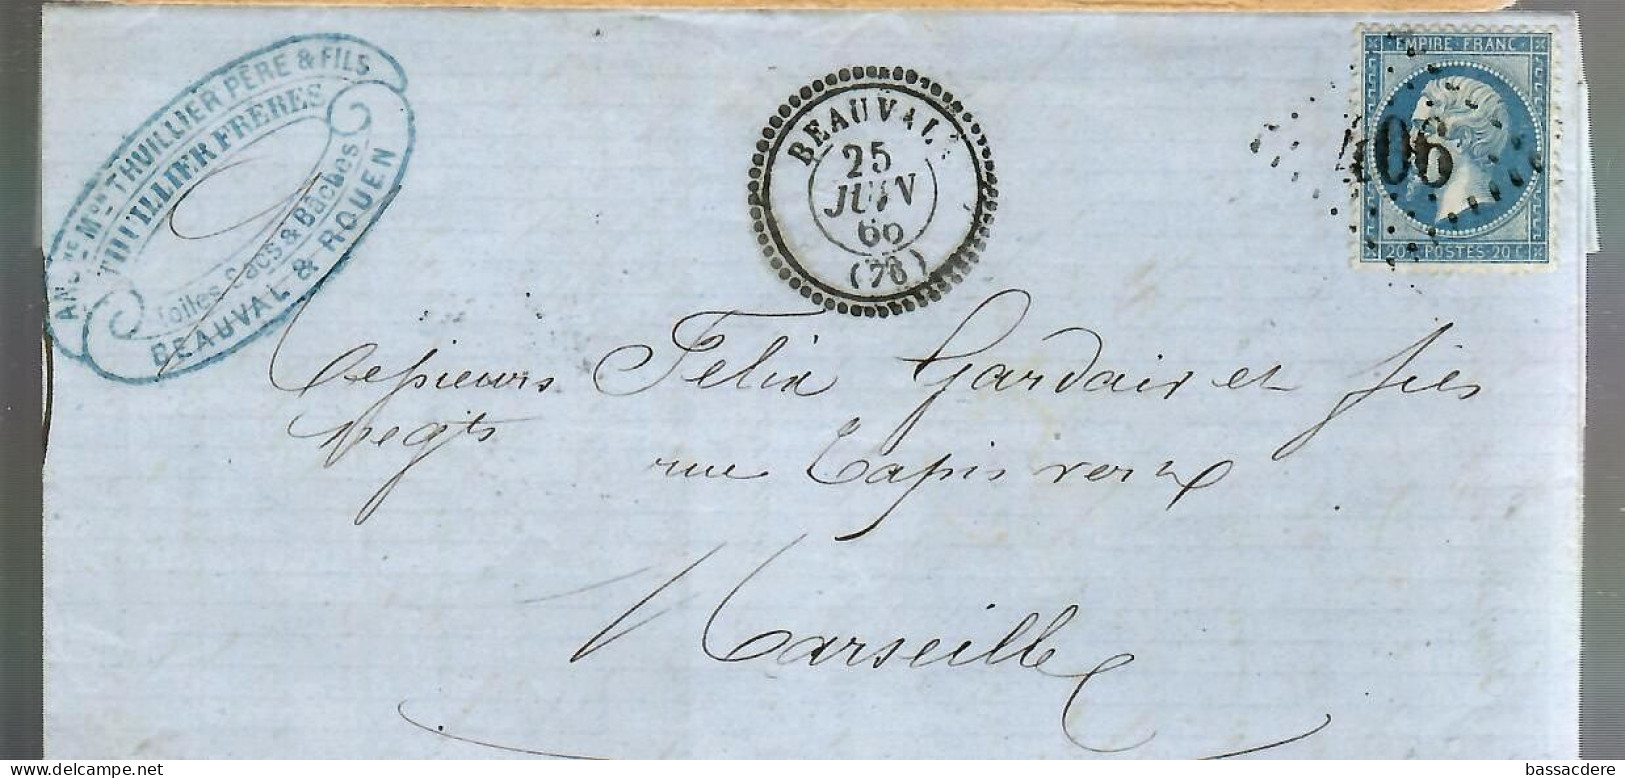 ANC.NE M.ON THUILLIER PÈRE & FILS
THUILLIER FRÈRES
Toiles Sacs & Bâches
BEAUVAL & ROUEN
BEAUVAL
25
JUIN
66
(76)
EMPIRE FRANC
406
20 C POSTES 20 C
Messieurs Félix Gardair et fils
negts
rue Tapis vert
Marseille
bassacdere